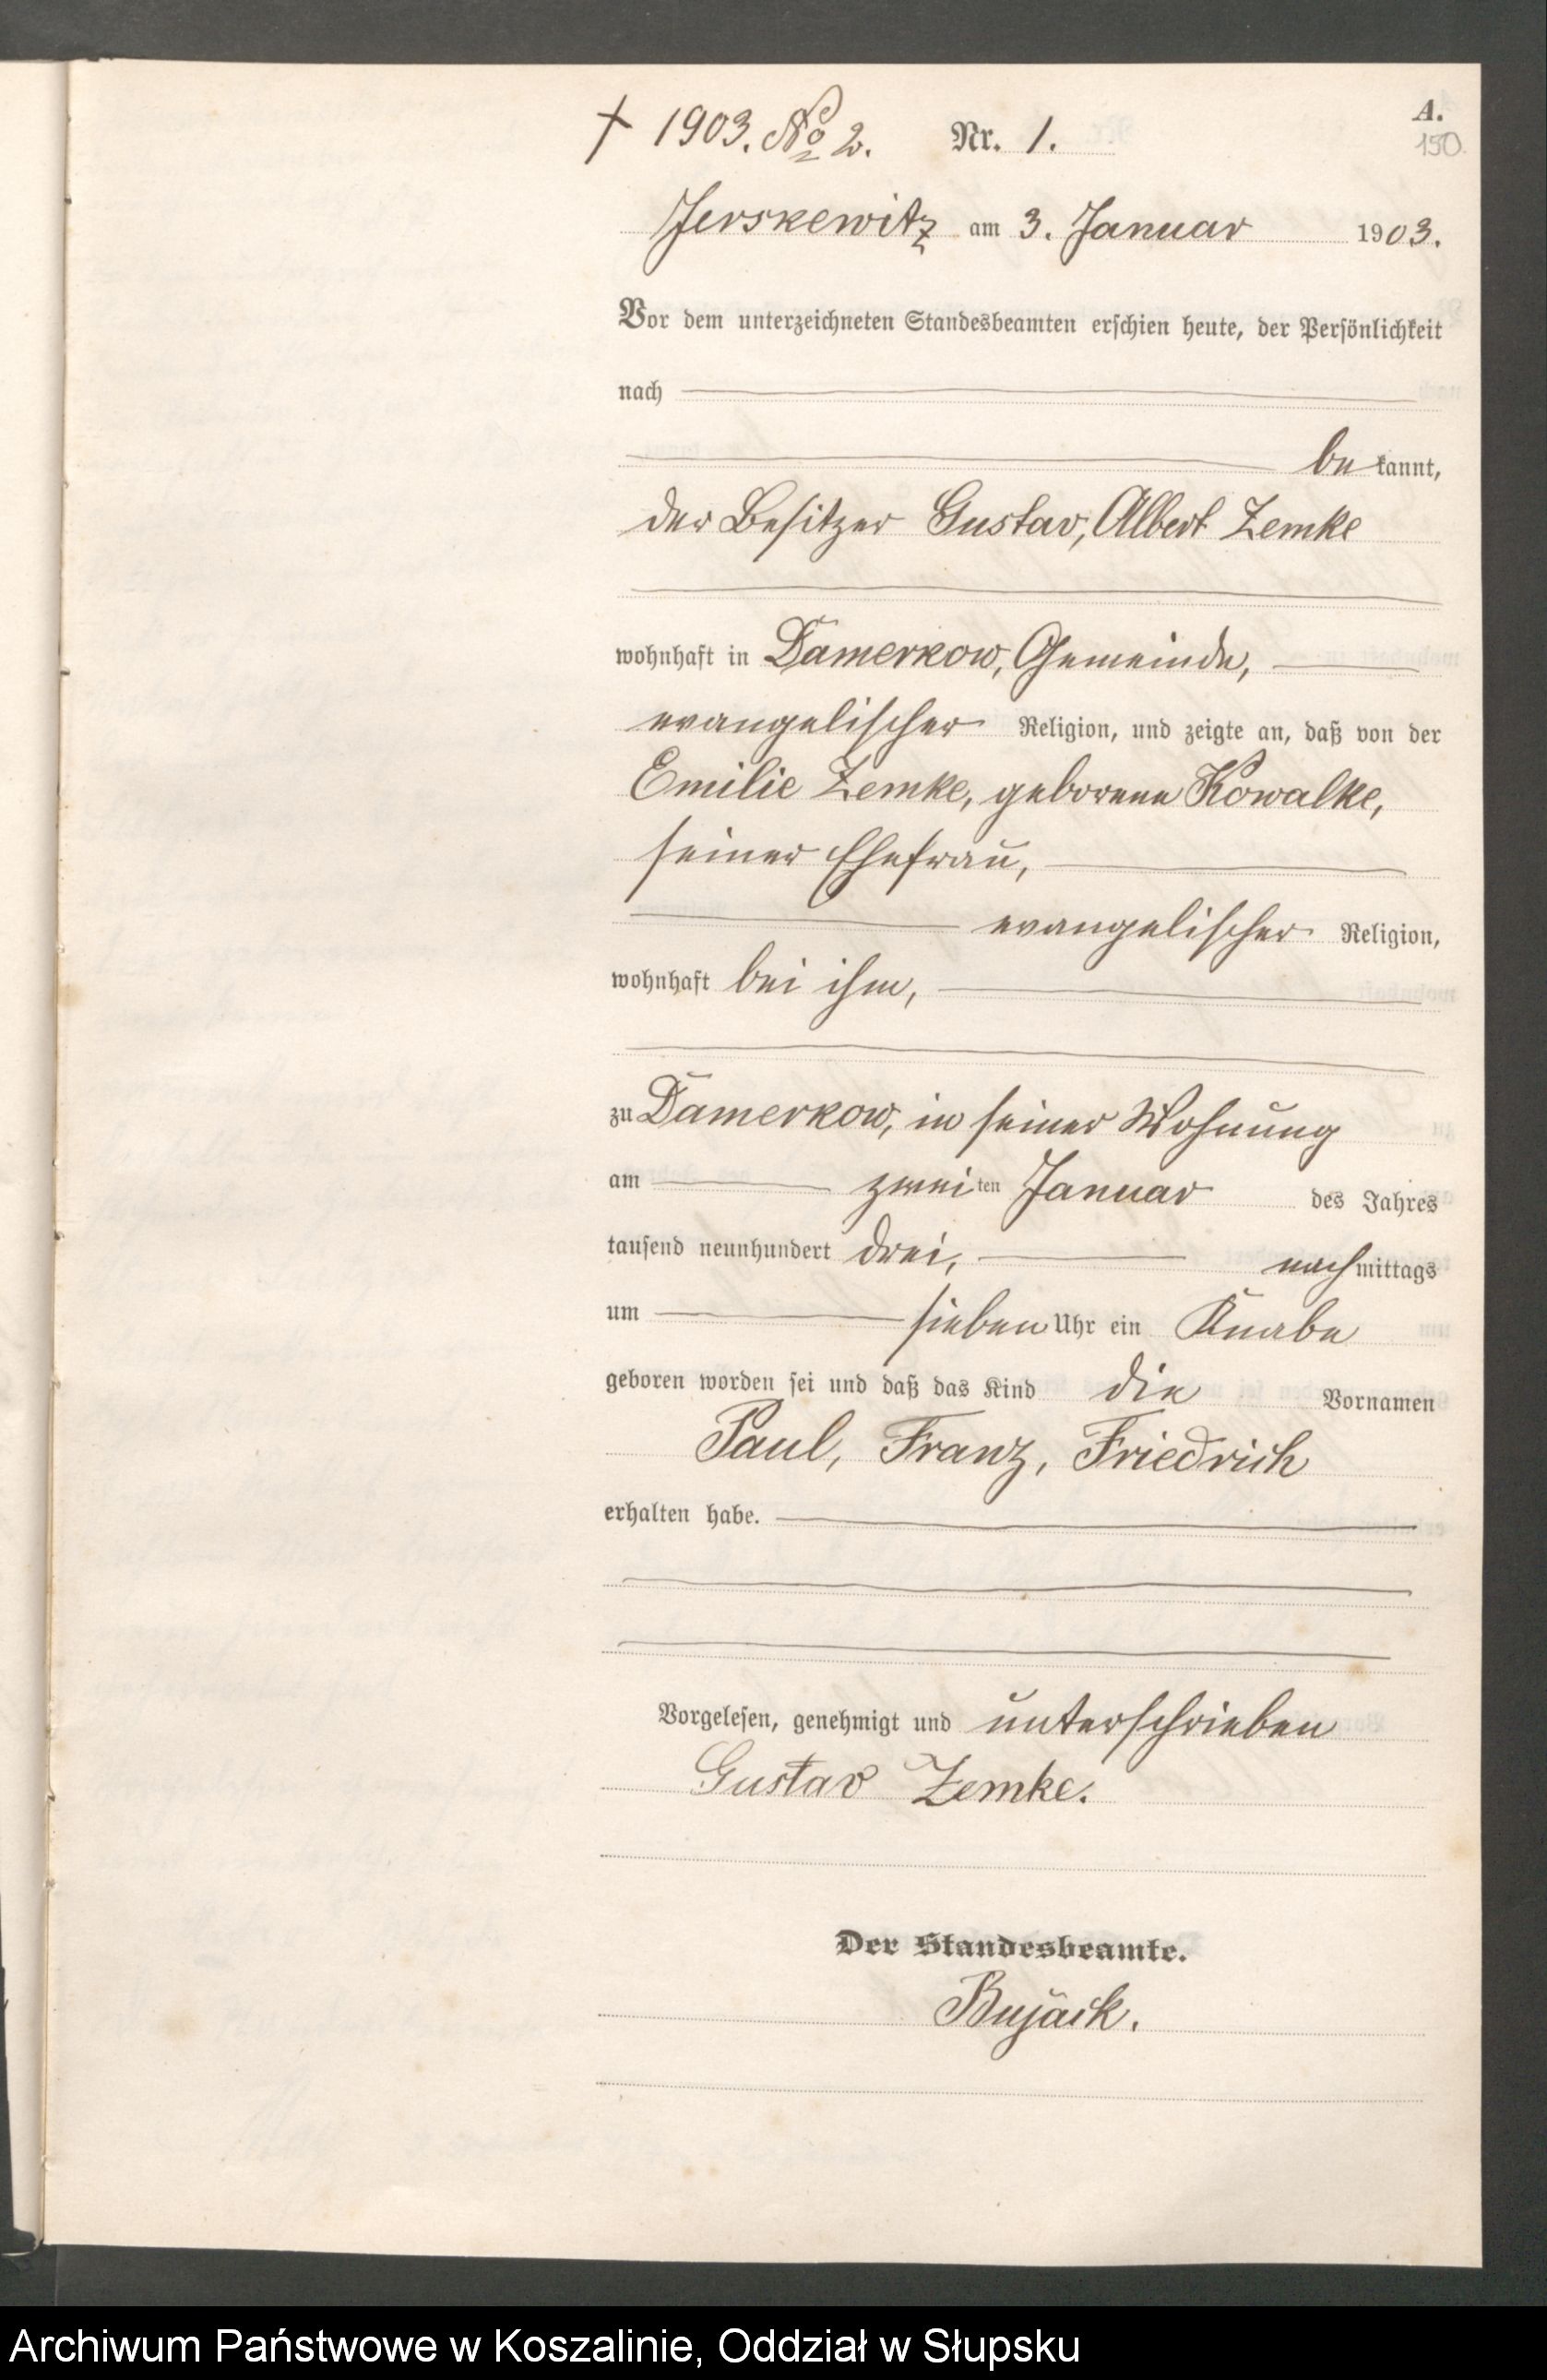 A.
† 1903. No 2. Nr. 1.
150
Jerskewitz am 3. Januar 1903.
Vor dem unterzeichneten Standesbeamten erschien heute, der Persönlichkeit
nach
be kannt,
der Besitzer Gustav, Albert Zemke
wohnhaft in Damerkow, Gemeinde,
evangelischer Religion, und zeigte an, daß von der
Emilie Zemke, geborene Kowalke,
seiner Ehefrau,
evangelischer Religion,
wohnhaft bei ihm,
zu Damerkow, in seiner Wohnung
am zweiten Januar des Jahres
tausend neunhundert drei, nachmittags
um sieben Uhr ein Knabe
geboren worden sei und daß das Kind die Vornamen
Paul, Franz, Friedrich
erhalten habe.
Vorgelesen, genehmigt und unterschrieben
Gustav Zemke.
Der Standesbeamte.
Bujack.
Archiwum Państwowe w Koszalinie, Oddział w Słupsku